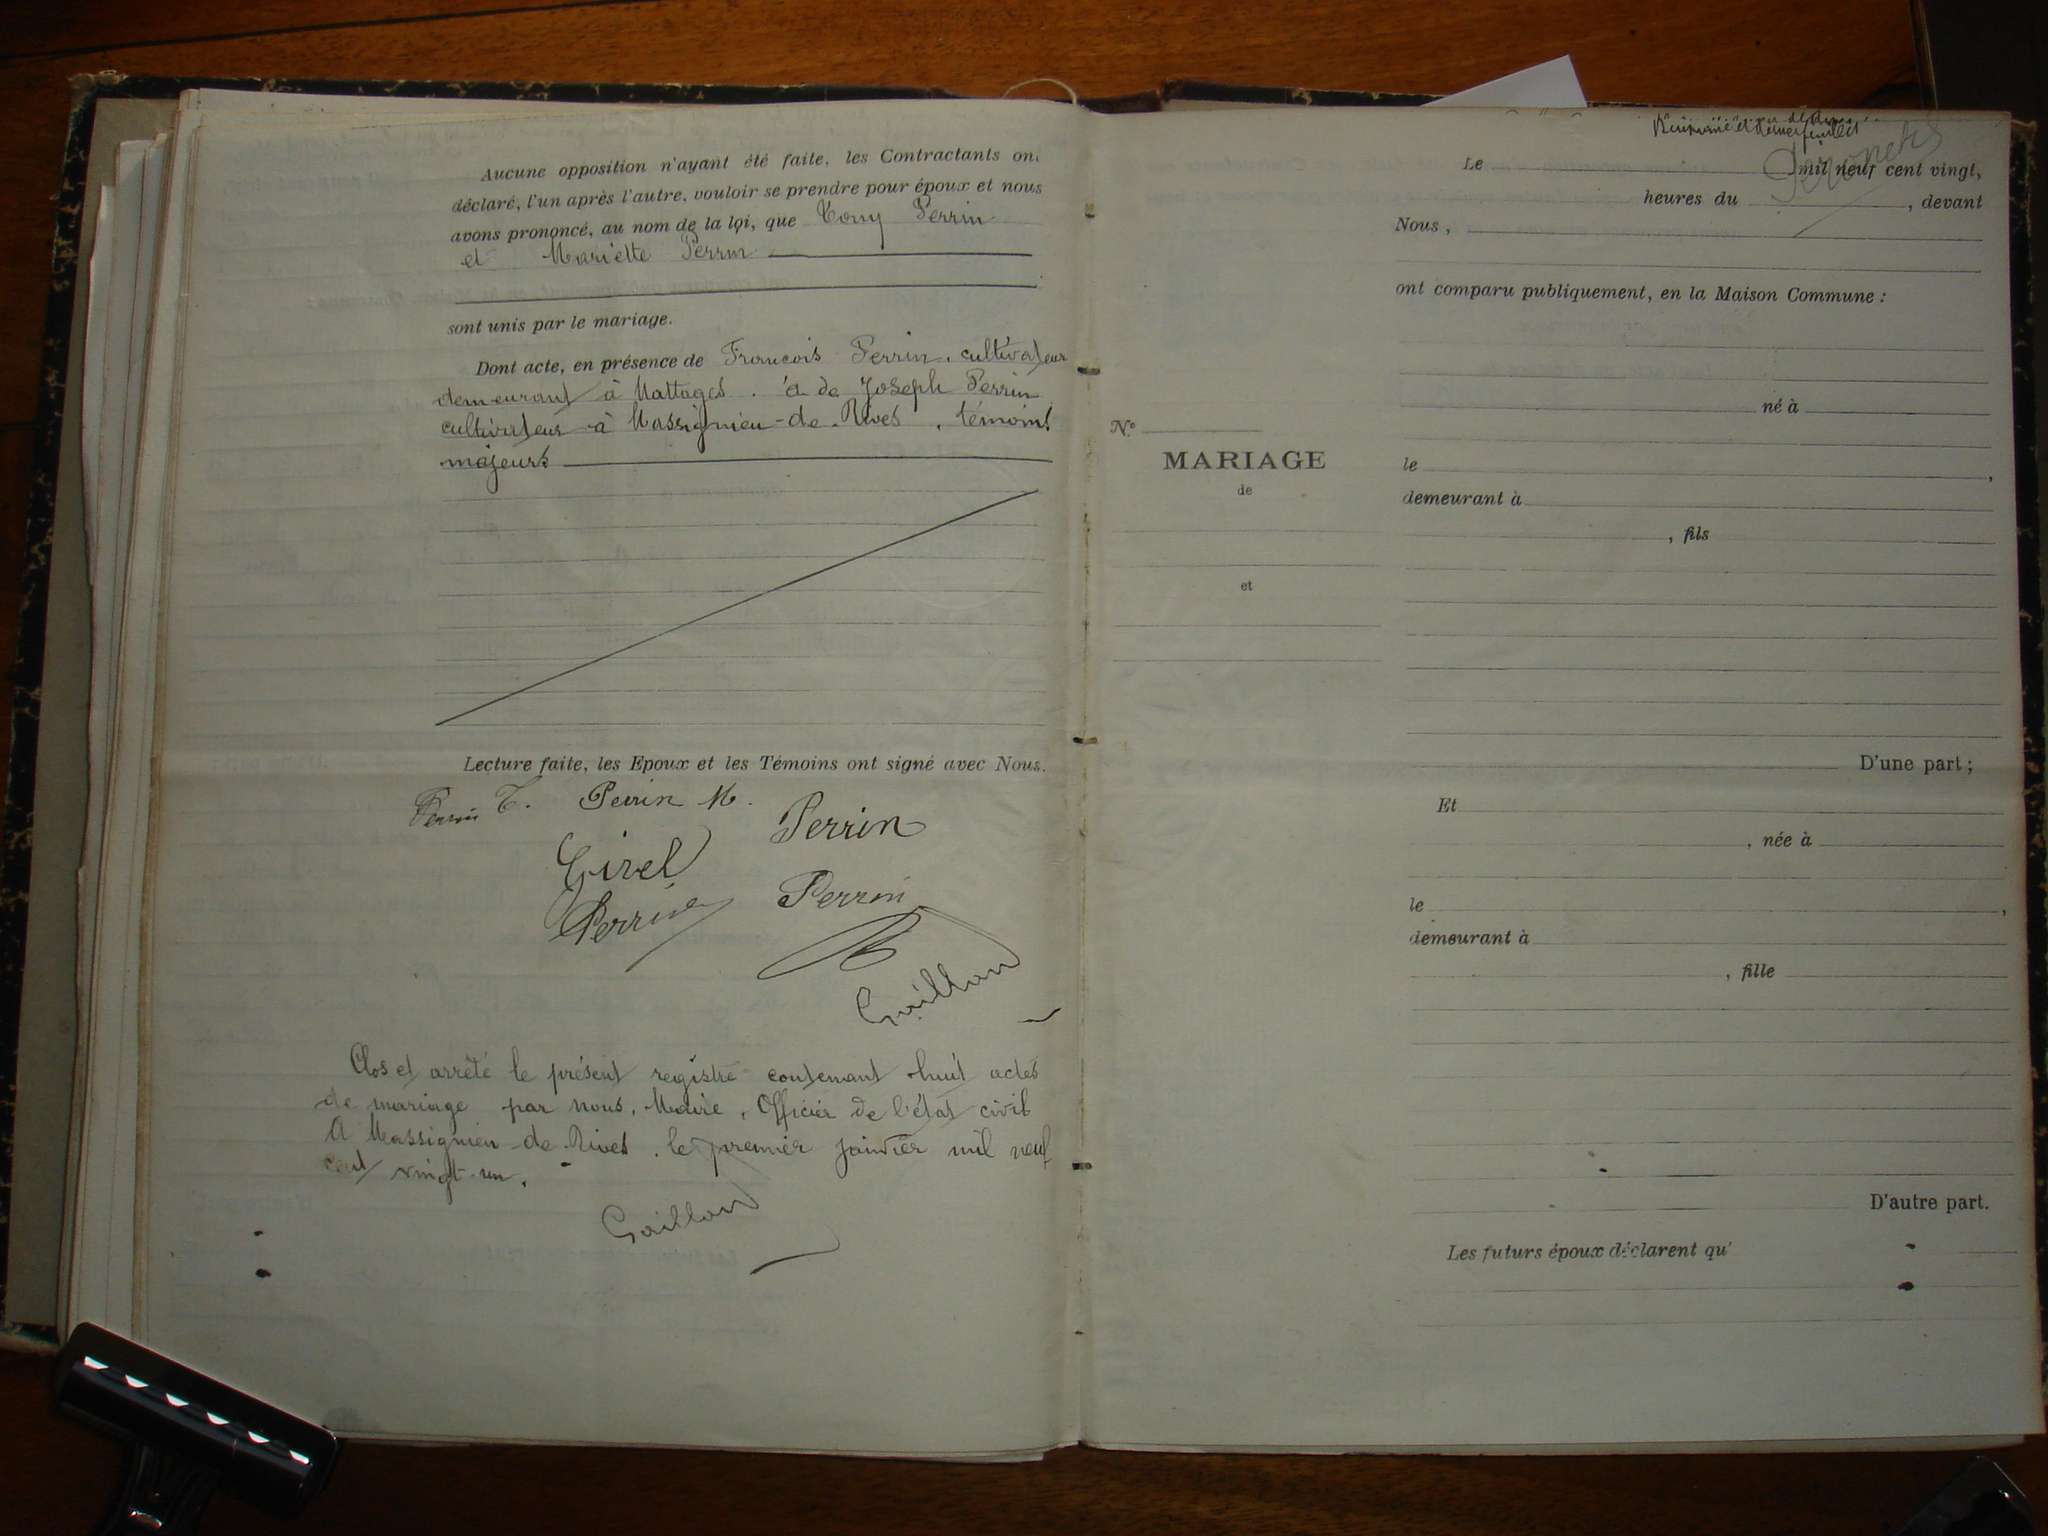 Aucune opposition n'ayant été faite, les Contractants ont
déclaré, l'un après l'autre, vouloir se prendre pour époux et nous
avons prononcé, au nom de la loi, que Tony Perrin
et Mariette Perrin
sont unis par le mariage.
Dont acte, en présence de François Perrin, cultivateur
demeurant à Nattages. & de Joseph Perrin
cultivateur à Massignieu-de-Rives, témoins
majeurs
Lecture faite, les Epoux et les Témoins ont signé avec Nous.
Perrin T. Perrin M.
Perrin
Girel
Perrin
Perrin
Gaillon
Clos et arrêté le présent registre contenant huit actes
de mariage par nous, Maire, Officier de l'état civil
A Massignieu-de-Rives. le premier janvier mil neuf
cent vingt-un.
Gaillon
et dernier feuillet
Le mil neuf cent vingt,
heures du , devant
Nous,
ont comparu publiquement, en la Maison Commune :
né à
N°
MARIAGE
le ,
de
demeurant à
, fils
et
D'une part ;
Et
, née à
le ,
demeurant à
, fille
D'autre part.
Les futurs époux déclarent qu'